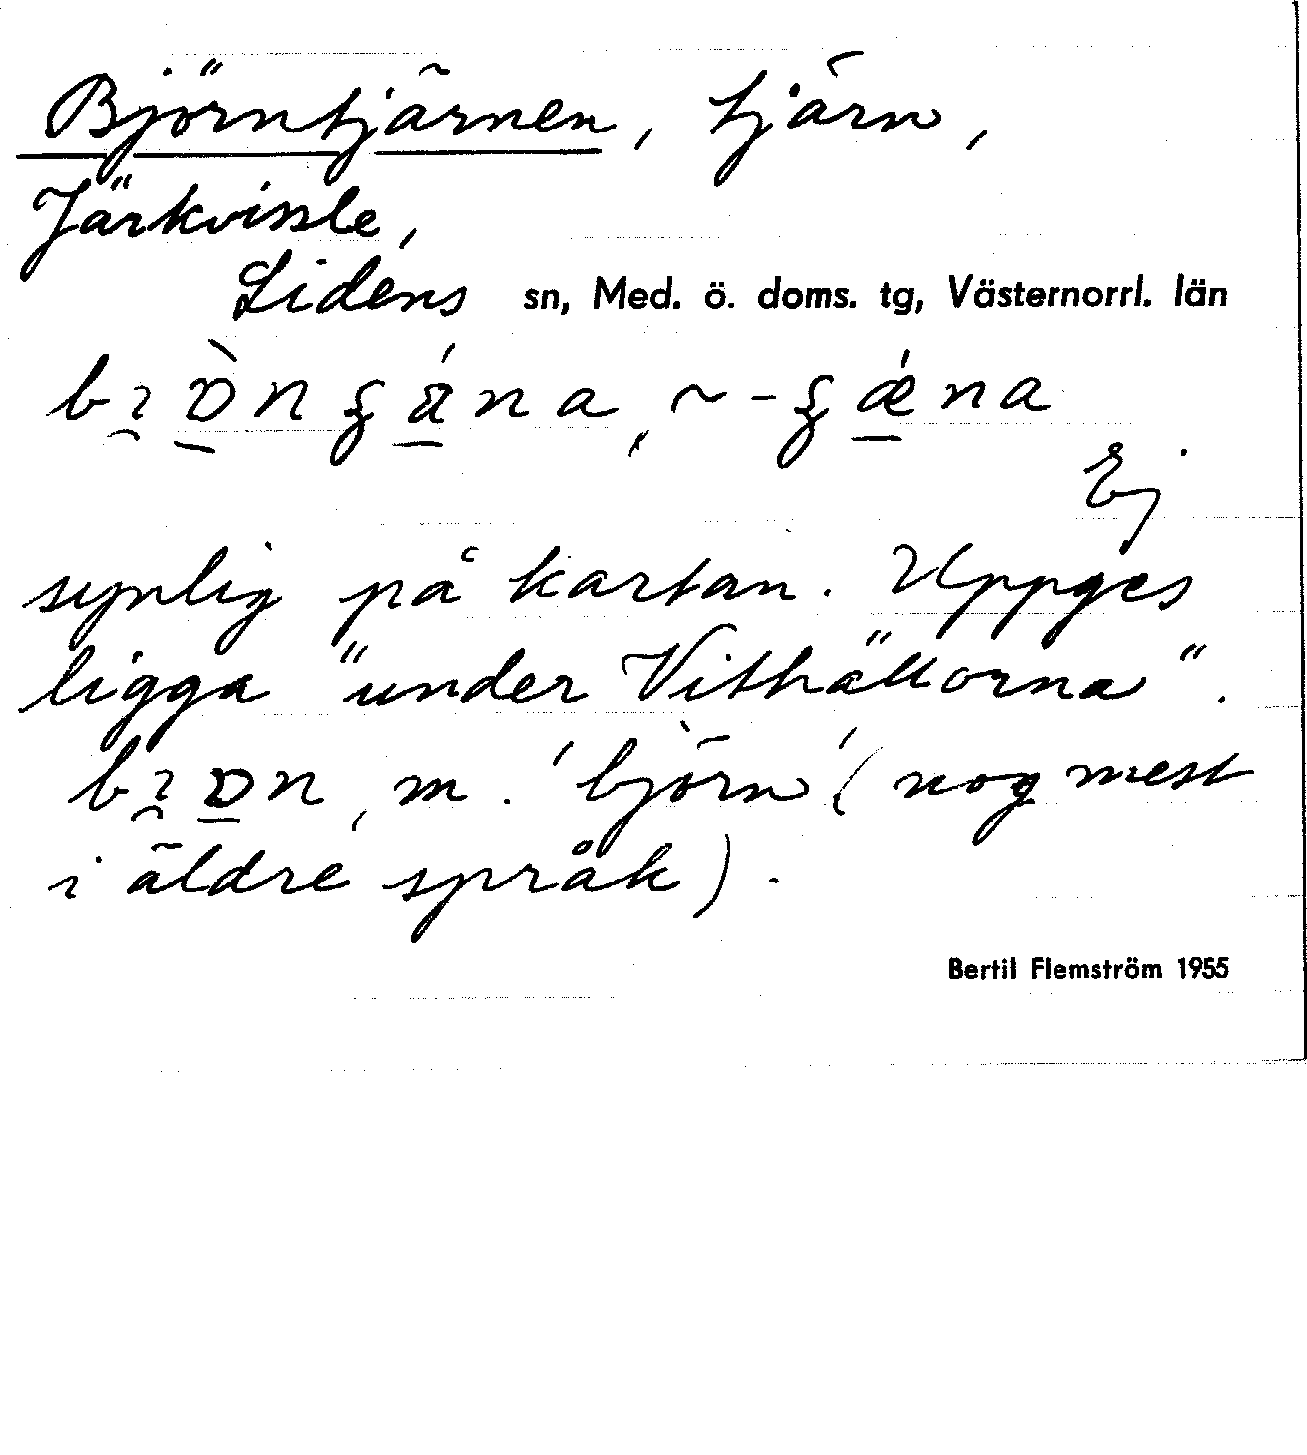 Björntjärnen, tjärn,
Järkvissle,
Lidens sn, Med. ö. doms. tg, Västernorrl. län
Ej
synlig på kartan. Uppges
ligga "under Vithällorna".
m. 'björn' (nog mest
i äldre språk).
Bertil Flemström 1955